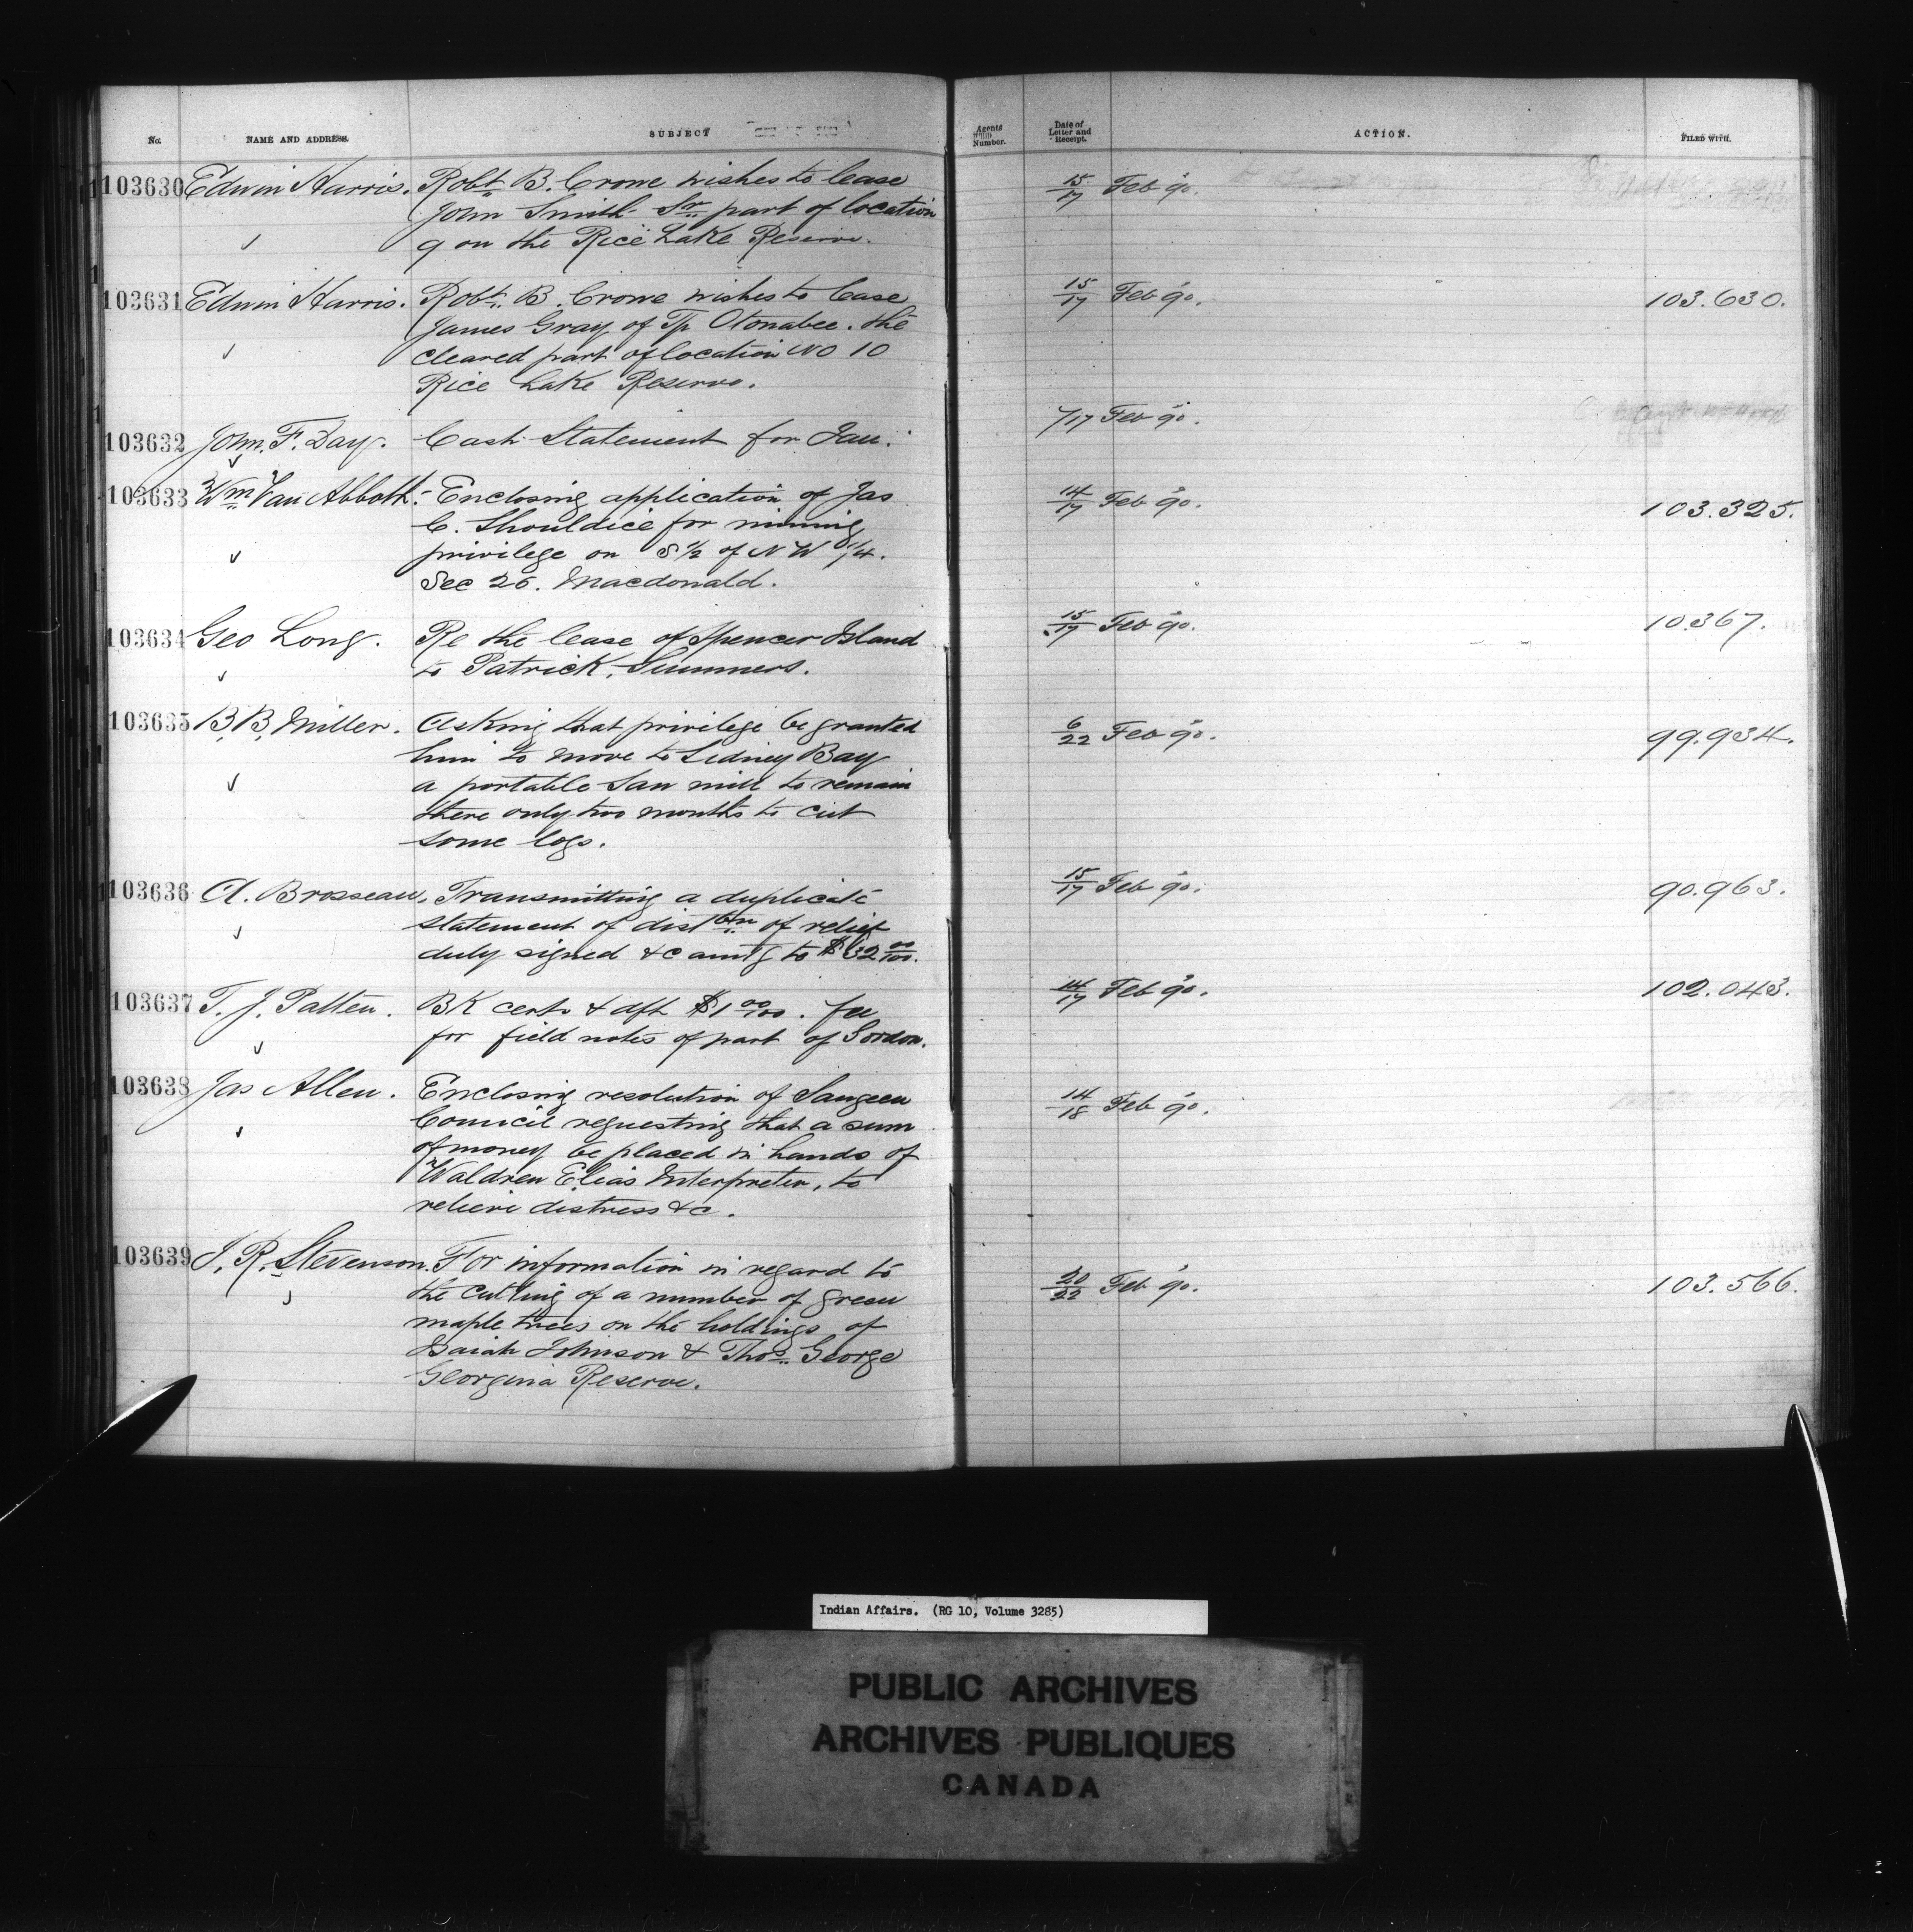 No. NAME AND ADDRESS. SUBJECT Agents Number. Date of Letter and Receipt. ACTION. FILED WITH.
103630 Edwin Harris. Robt B. Crowe wishes to lease 15/17 Feb 90.
John Smith Sr part of location
9 on the Rice Lake Reserve.
103631 Edwin Harris. Robt. B. Crowe wishes to lease 15/17 Feb 90. 103.630.
James Gray of Tp Otonabee. the
cleared part of location No 10
Rice Lake Reserve.
103632 John. F. Day. Cash Statement for Jan. /17 Feb 90.
103633 Wm Van Abbott. Enclosing application of Jas 14/17 Feb 90. 103.325.
C. Shouldice for mining
privilege on S 1/2 of N W 1/4.
Sec 26. Macdonald.
103634 Geo Long. Re the lease of Spencer Island 15/17 Feb 90. 10367.
to Patrick Summers.
103635 B. B. Miller. Asking that privilege be granted 6/22 Feb 90. 99.934.
him to move to Sidney Bay
a portable Saw mill to remain
there only two months to cut
some logs.
103636 A. Brosseau. Transmitting a duplicate 15/17 Feb 90. 90.963.
statement of distbtn of relief
duly signed &c amtg to $32 00/100.
103637 T. J. Patten. BK certs & dft $1 00/100. fee 14/17 Feb 90. 102.043.
for field notes of part of Gordon.
103638 Jas Allen. Enclosing resolution of Saugeen 14/18 Feb 90.
Council requesting that a sum
of money be placed in hands of
Waldren Elias Interpreter, to
relieve distress &c.
103639 J. R. Stevenson. For information in regard to 20/22 Feb 90. 103.566.
the cutting of a number of green
maple trees on the holdings of
Isaiah Johnson & Thos. George
Georgina Reserve.
Indian Affairs. (RG 10, Volume 3285)
PUBLIC ARCHIVES
ARCHIVES PUBLIQUES
CANADA